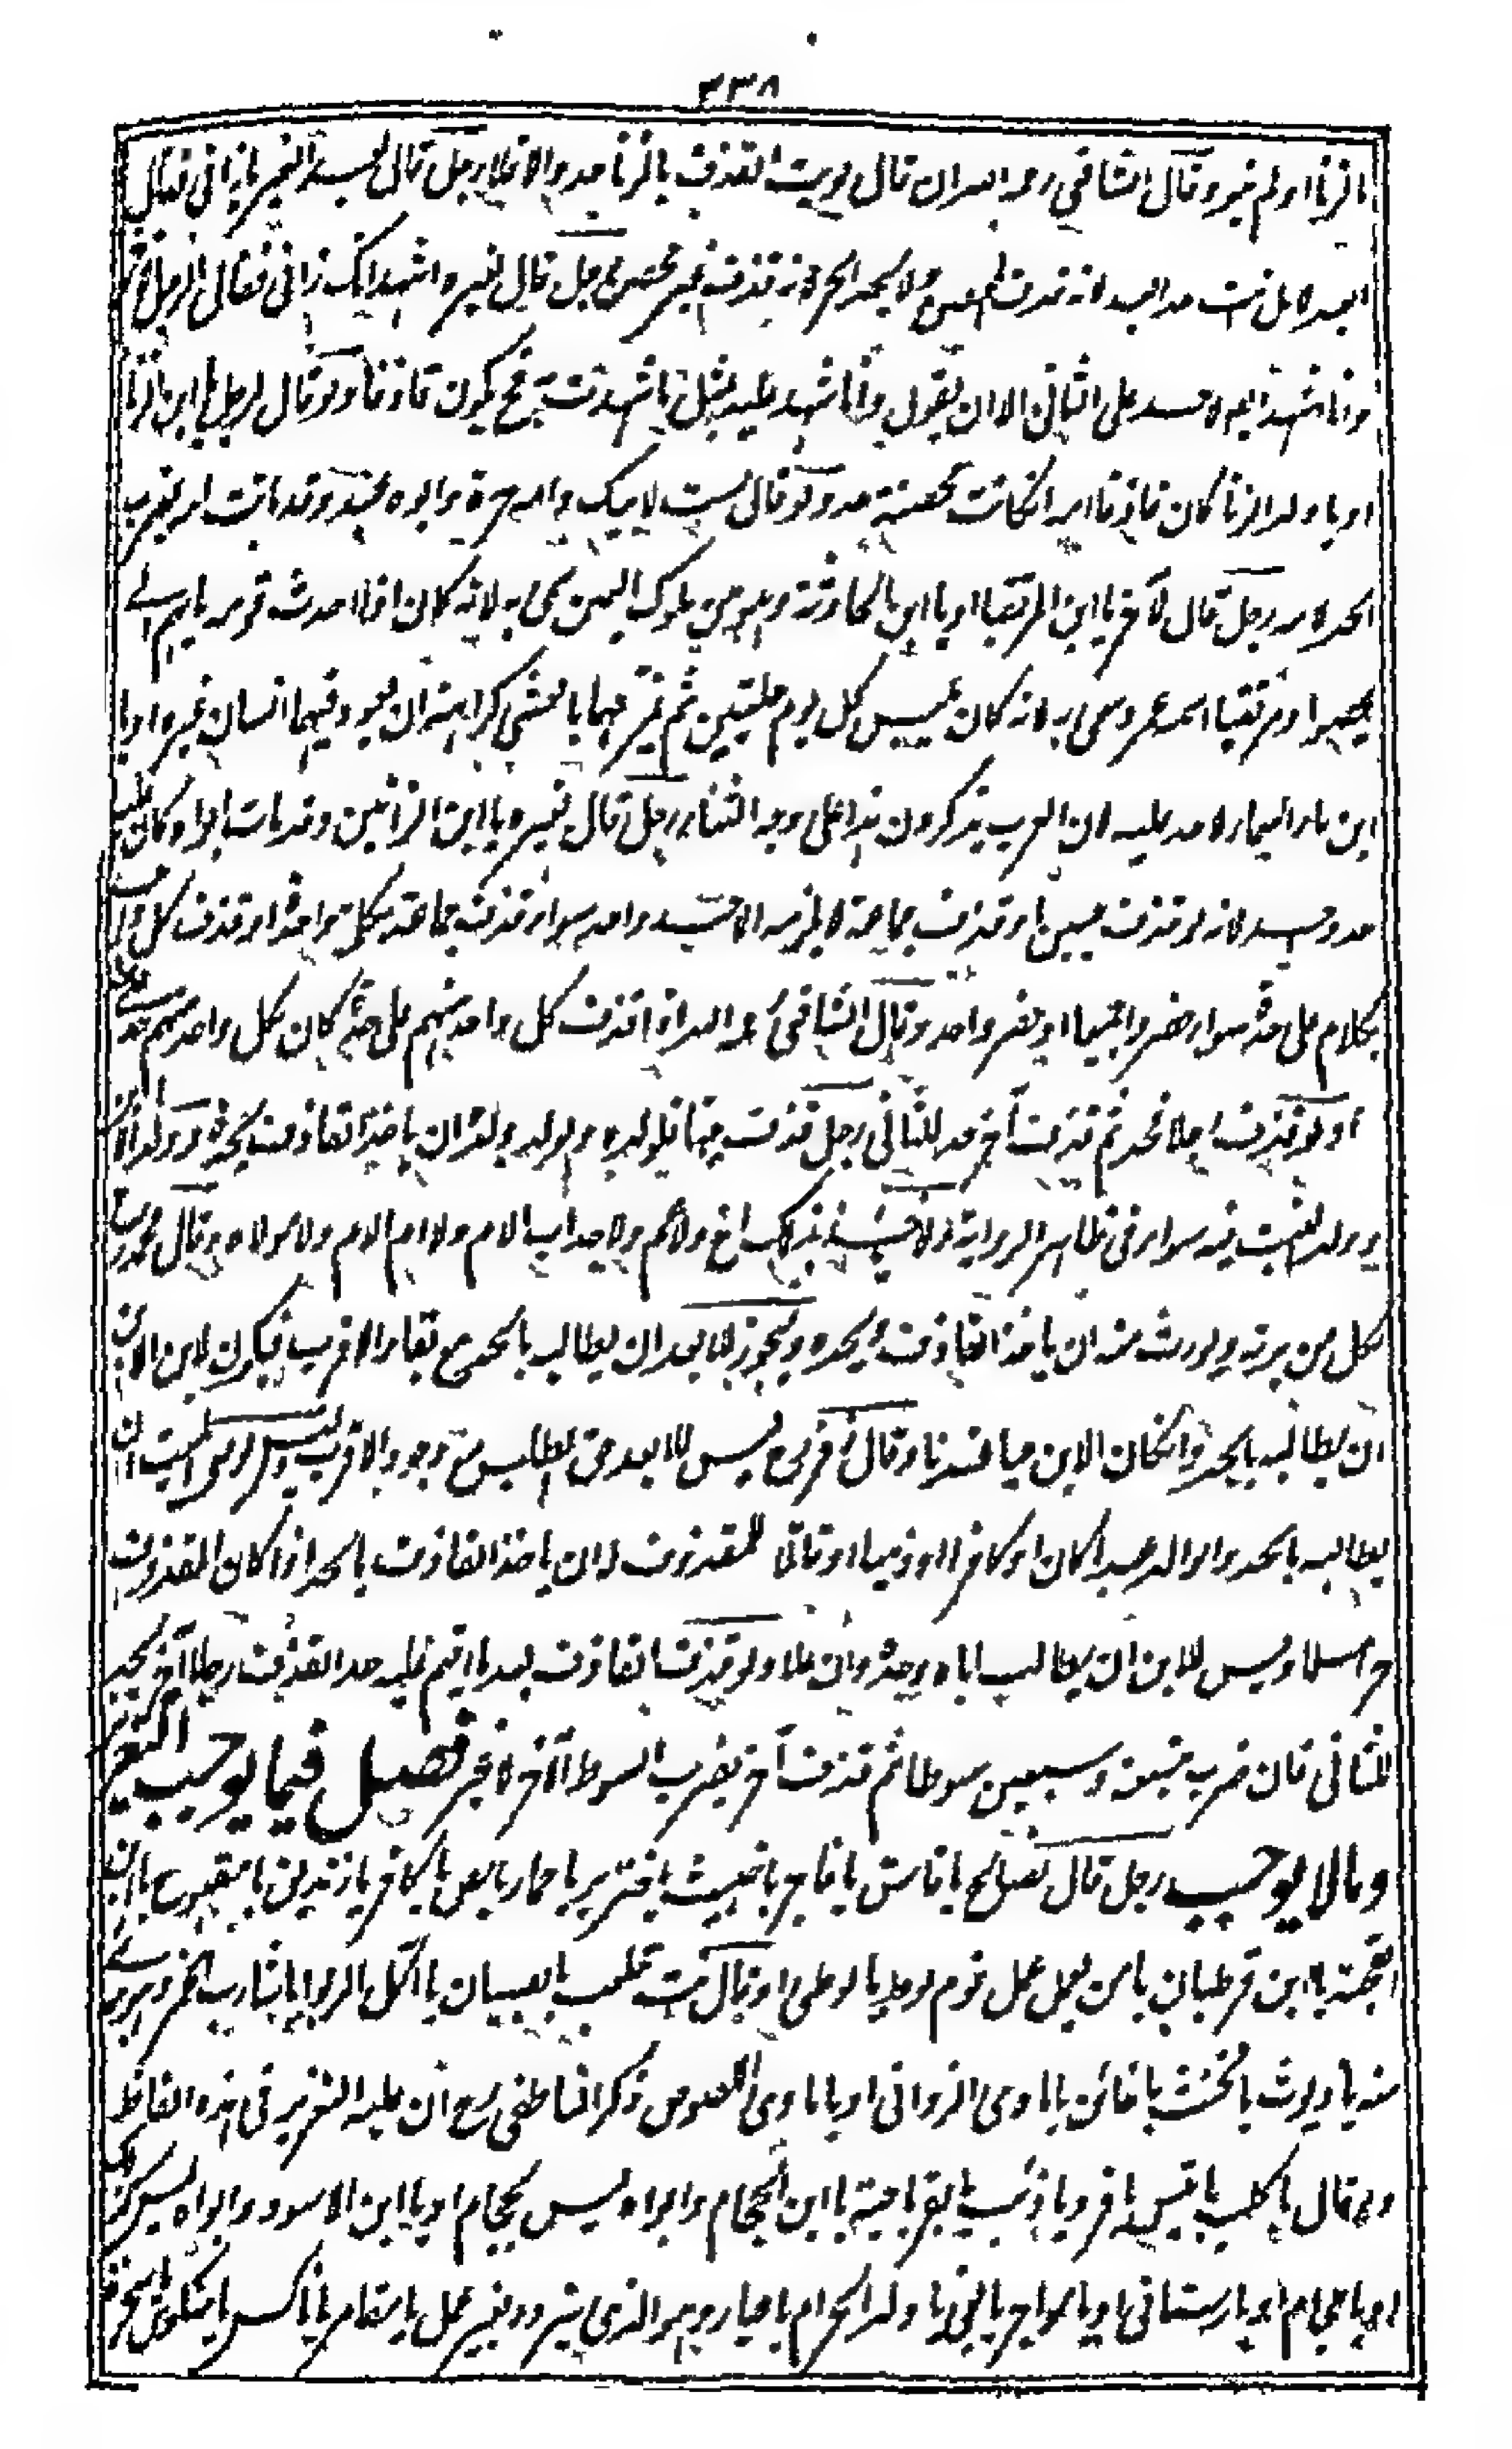 ٣٣٨
الزنا اولم ينو وقال الشافعي رحمه الله ان قال نويت القذف بالزنا حد والا فلا رجل قال لعبد الغير يا زاني فقال
العبد لا بل انت حد العبد لانه قذف المحصن ولا يحد الحر لانه قذف غير محصن رجل قال لغيره اشهد انك زاني فقال الرجل الآخر
وانا اشهد ايضا لا حد على الثاني الا ان يقول وانا اشهد عليه بمثل ما شهدت به فح يكون قاذفا ولو قال لرجل يا ابن الزنا
او يا ولد الزنا كان قاذفا امه ان كانت محصنة حد ولو قال لست لابيك وامه حرة وابوه عبد وقد ماتت امه يضرب
الحد لامه رجل قال لآخر يا ابن المزيقيا او يا ابن ماء وهو من ملوك اليمن سمي به لانه كان اذا حدث قومه يا
اسمه عمرو سمي به لانه كان يلبس كل يوم حلتين ثم يمزقهما بالعشي كراهة ان يعود فيهما انسان غيره او يا
ابن ماء السماء لا حد عليه لان العرب يذكرون هذا على وجه الثناء رجل قال لغيره يا ابن الزانيين وقد مات ابواه كان عليه
حد واحد لانه لو قذف حيين او قذف جماعة لا يلزمه الا حد واحد سواء قذف جماعة بكلمة واحدة او قذف كل واحد
بكلام على حدة سواء حضروا جميعا او حضر واحد وقال الشافعي رحمه الله اذا قذف كل واحد منهم على حدة كان لكل واحد منهم حد
ولو قذف رجلا فحد ثم قذف آخر حد للثاني رجل قذف ميتا فلولده ولولد ولده ان ياخذ القاذف بحده وولد الابن
وولد البنت فيه سواء في ظاهر الرواية ولا ياخذ بذلك اخ ولا عم ولا جد اب الام ولا ام الام ولا مولاه وقال محمد رح
لكل من يرثه ويورث منه ان ياخذ القاذف ويحده ويجوز للابعد ان يطالب بالحد مع بقاء الاقرب فيكون لابن الابن
ان يطالبه بالحد وان كان الابن حيا عندنا وقال زفر رح ليس للابعد حق المطالبة مع وجود الاقرب وليس لوصي الميت ان
يطالبه بالحد والوالد عبدا كان او كافرا او ذميا او قاتلا للمقذوف له ان ياخذ القاذف بالحد اذا كان المقذوف
حرا مسلما وليس للابن ان يطالب اباه وجده وان علا ولو قذف القاذف بعد ما اقيم عليه حد القذف رجلا آخر يحد
للثاني فان ضرب تسعة وسبعين سوطا ثم قذف آخر يضرب السوط الآخر لا غير فصل فيما يوجب التعزير
وما لا يوجب رجل قال لصالح يا فاسق يا فاجر يا خبيث يا خنزير يا حمار يا لص يا كافر يا زنديق يا مقبوح يا ابن
القحبة يا ابن قرطبان يا من يعمل عمل قوم لوط يا لوطي او قال انت تلعب بالصبيان يا آكل الربوا يا شارب الخمر وهو بريء
منه يا ديوث يا مخنث يا خائن يا ماوى الزواني او يا ماوى اللصوص ذكر الناطفي رح ان عليه التعزير في هذه الفاظ
ولو قال يا كلب يا تيس يا قرد يا ذئب يا بقر يا حية يا ابن الحجام وابوه ليس بحجام او يا ابن الاسود وابوه ليس كذلك
او يا حجام او يا رستاقي او يا مواجر يا بغي يا ولد الحرام يا عيار وهو الذي يتردد بغير عمل يا مقامر يا ناكس يا منكوس